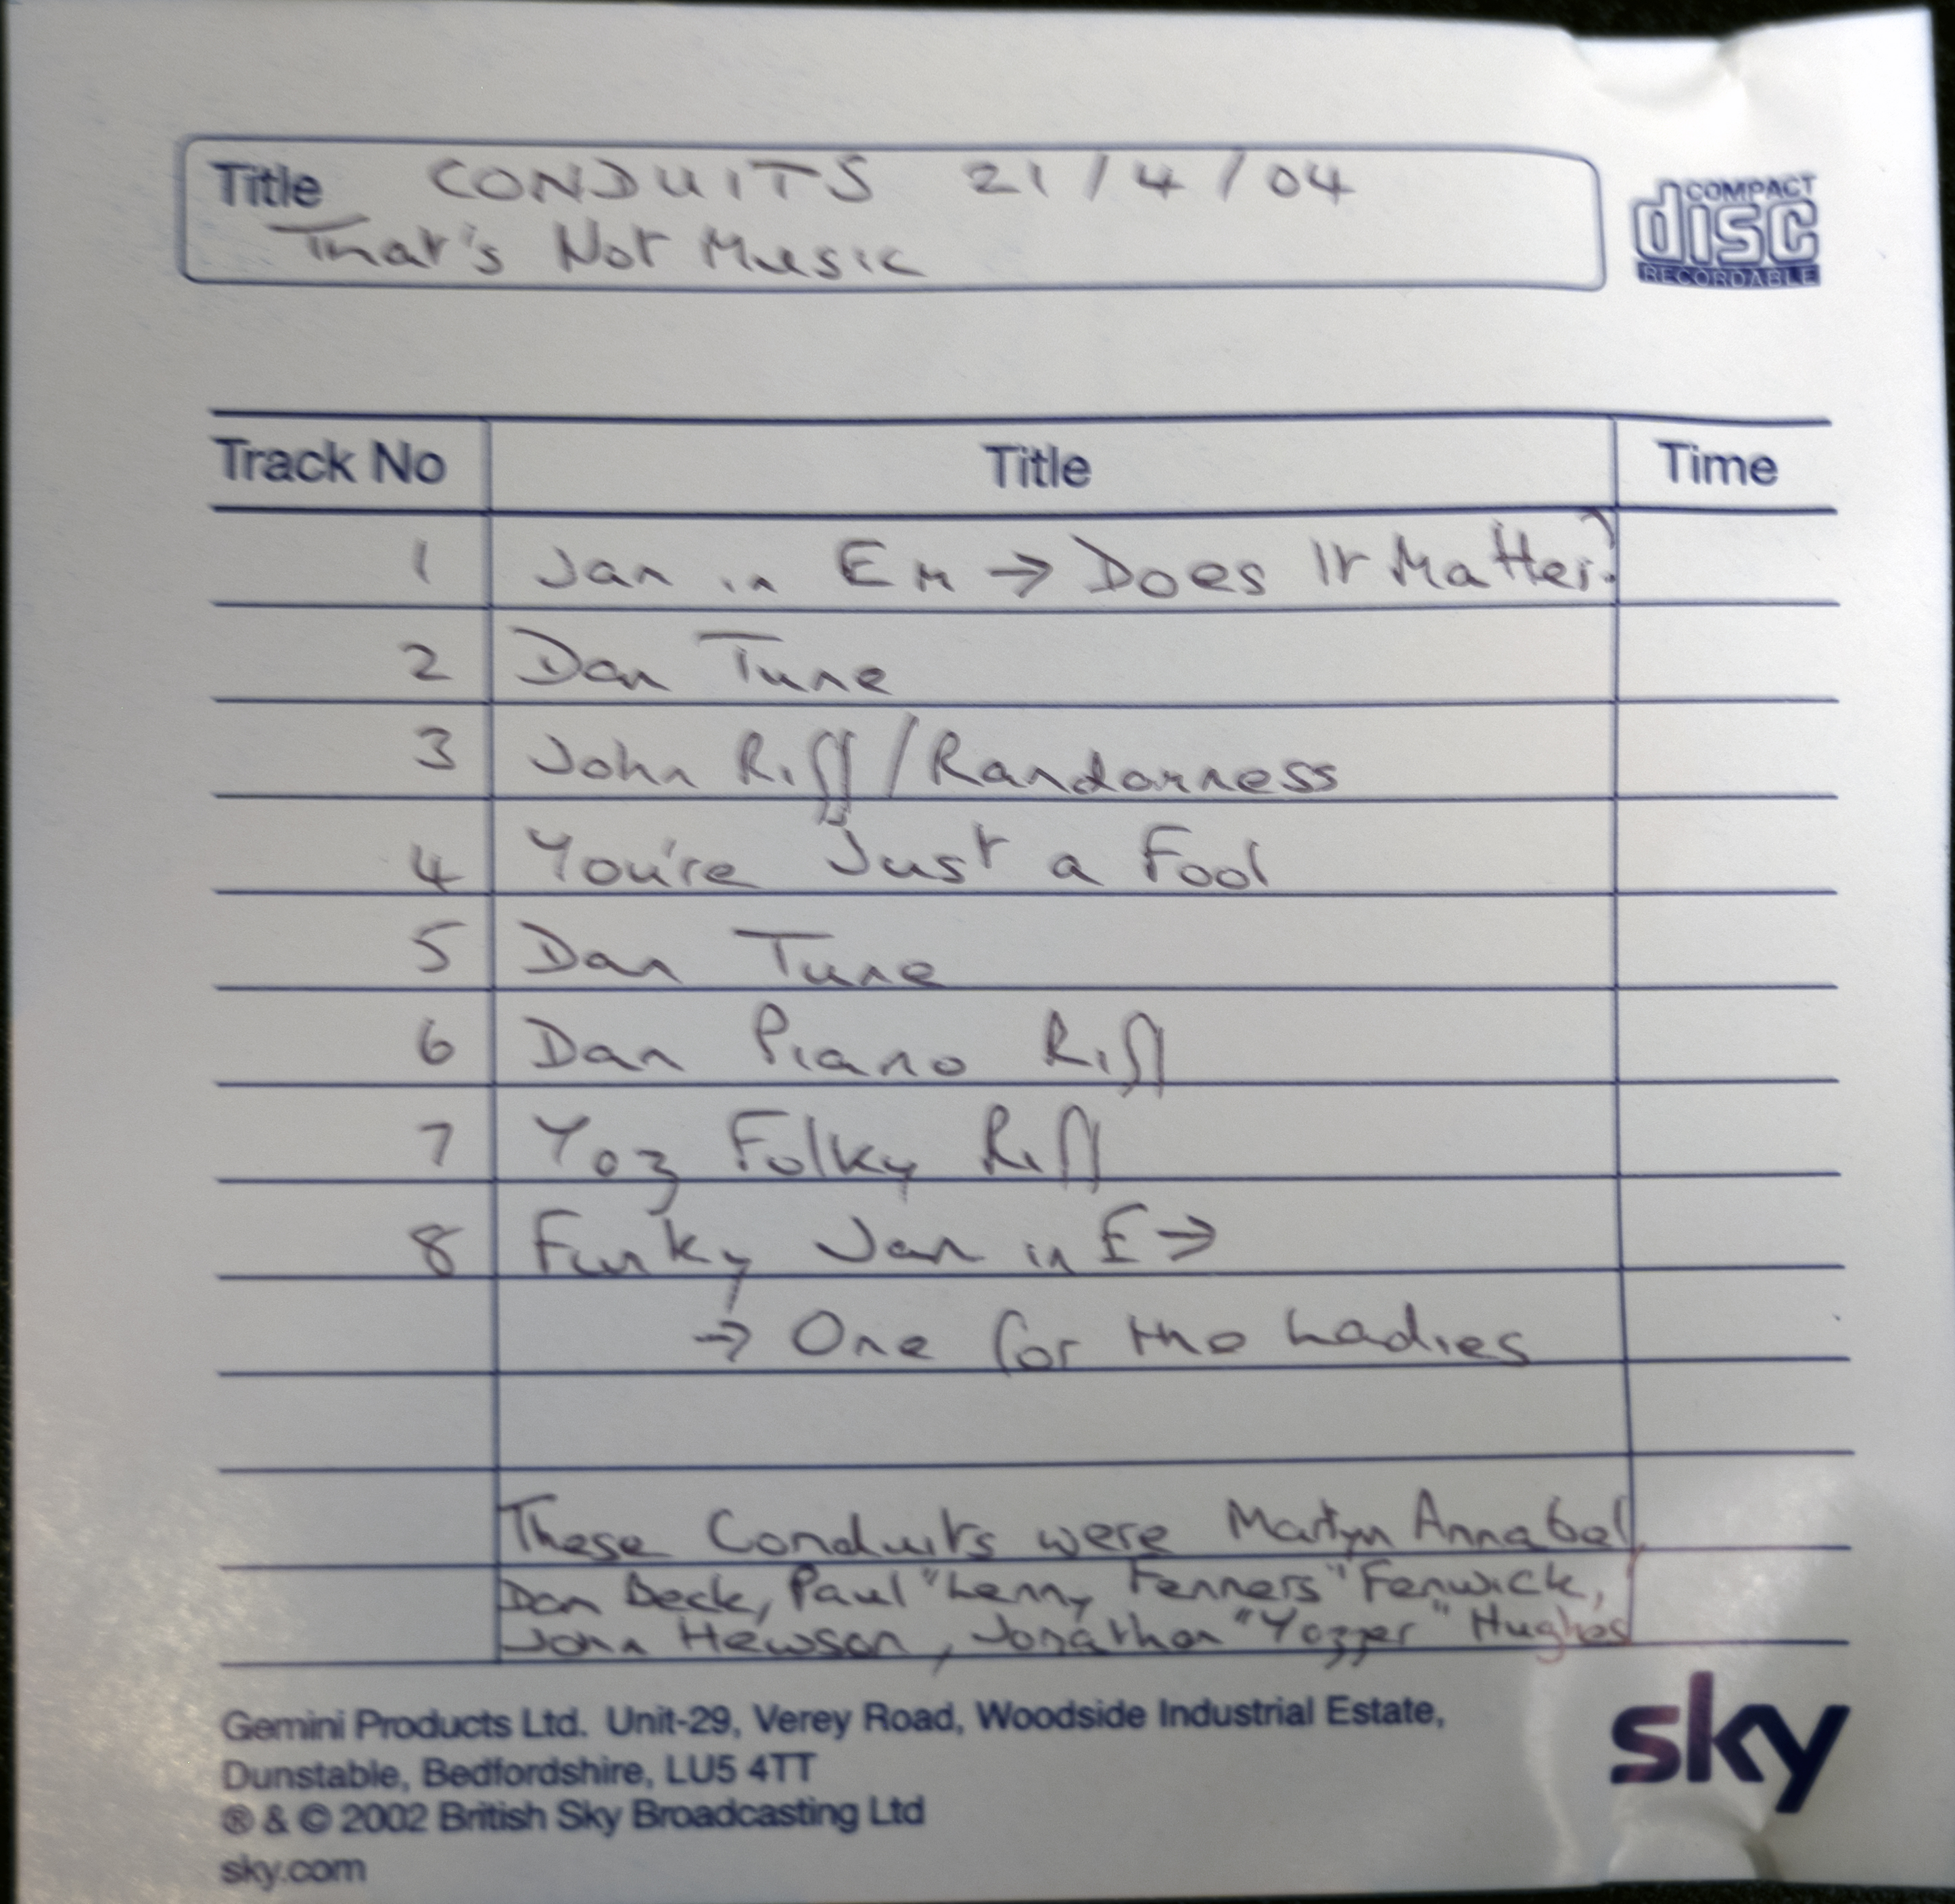 Title CONDUITS 21/4/04
That's Not Music
COMPACT
disc
RECORDABLE
Track No Title Time
1 Jam in Em → Does It Matter?
2 Dan Tune
3 John Riff/Randomness
4 You're Just a Fool
5 Dan Tune
6 Dan Piano Riff
7 Yoz Folky Riff
8 Funky Jam in E →
→ One for the Ladies
These Conduits were Martyn Annabel,
Dan Beck, Paul "Lenny Fenners" Fenwick,
John Hewson, Jonathan "Yozzer" Hughes
Gemini Products Ltd. Unit-29, Verey Road, Woodside Industrial Estate,
Dunstable, Bedfordshire, LU5 4TT
® & © 2002 British Sky Broadcasting Ltd
sky.com
sky